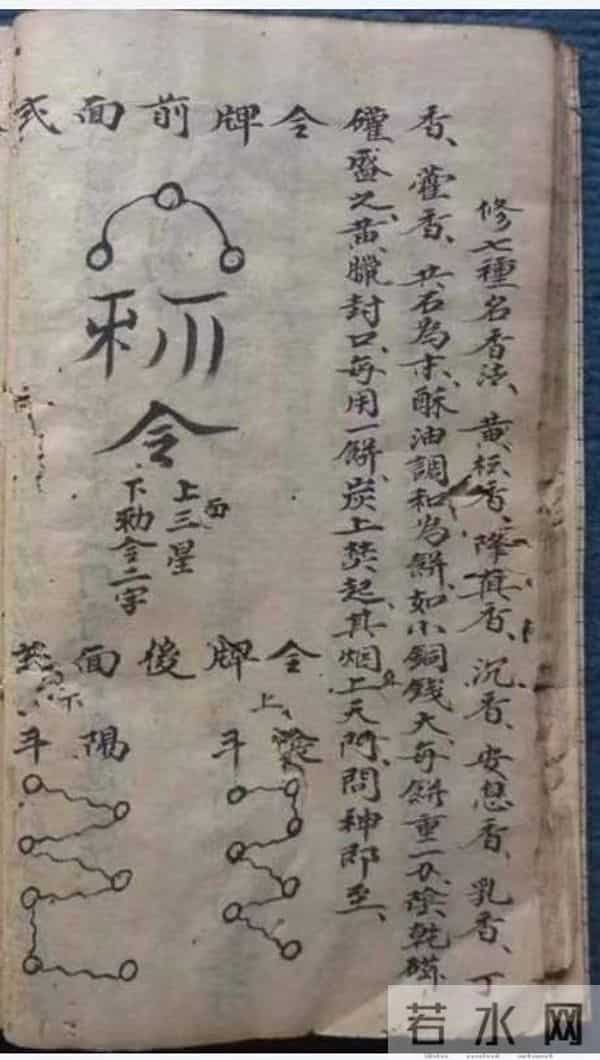 修七種名香法、黄香、降真香、沉香、安息香、乳香、丁
香、藿香、共石為末、酥油調和為餅、如小銅錢大、每餅重二分、陰乾、磁
礶盛之、黄臘封口、每用一餅、炭上焚起、其烟上天門、問神即至、
令牌前面式
勅
令
上面三星
下勅令二字
令牌後面
上
下
陰斗
陽斗
若水网